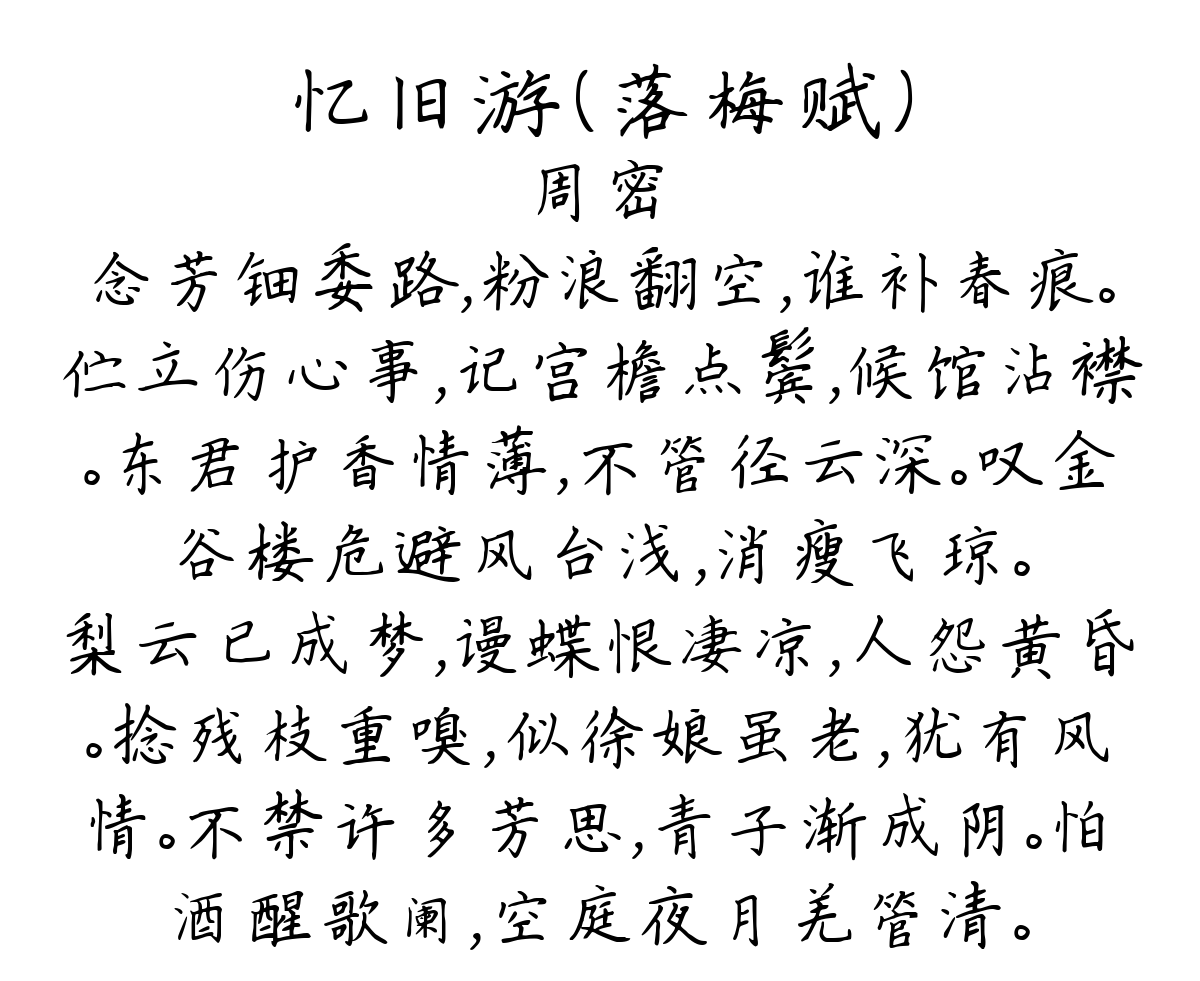 忆旧游(落梅赋)
周密
念芳钿委路,粉浪翻空,谁补春痕。
伫立伤心事,记宫檐点鬓,候馆沾襟
。东君护香情薄,不管径云深。叹金
谷楼危避风台浅,消瘦飞琼。
梨云已成梦,谩蝶恨凄凉,人怨黄昏
。捻残枝重嗅,似徐娘虽老,犹有风
情。不禁许多芳思,青子渐成阴。怕
酒醒歌阑,空庭夜月羌管清。